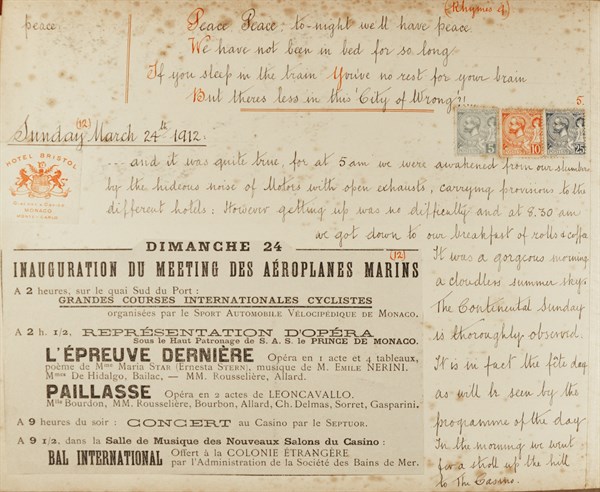 (Rhymes 4)
peace
Peace Peace: to-night we'll have peace
We have not been in bed for so long
If you sleep in the train You've no rest for your brain
But theres less in this 'City of Wrong'!!
5.
(12)
Sunday March 24th 1912.
5 10 25
HOTEL BRISTOL
MONACO
MONTE-CARLO
... and it was quite true, for at 5 am we were awakened from our slumbers
by the hideous noise of Motors with open exhausts, carrying provisions to the
different hotels: However getting up was no difficulty and at 8.30 am
we got down to our breakfast of rolls & coffee
DIMANCHE 24
(12)
INAUGURATION DU MEETING DES AÉROPLANES MARINS
A 2 heures, sur le quai Sud du Port :
GRANDES COURSES INTERNATIONALES CYCLISTES
organisées par le SPORT AUTOMOBILE VÉLOCIPÉDIQUE DE MONACO.
A 2 h. 1/2, REPRÉSENTATION D'OPÉRA
Sous le Haut Patronage de S. A. S. le PRINCE DE MONACO
L'ÉPREUVE DERNIÈRE Opéra en 1 acte et 4 tableaux,
poème de Mme Maria STAR (Ernesta STERN), musique de M. EMILE NERINI.
Mmes De Hidalgo, Bailac, — MM. Rousselière, Allard.
PAILLASSE Opéra en 2 actes de LEONCAVALLO.
Mlle Bourdon, MM. Rousselière, Bourbon, Allard, Ch. Delmas, Sorret, Gasparini.
A 9 heures du soir : CONCERT au Casino par le SEPTUOR.
A 9 1/2, dans la Salle de Musique des Nouveaux Salons du Casino :
BAL INTERNATIONAL Offert à la COLONIE ÉTRANGÈRE
par l'Administration de la Société des Bains de Mer.
It was a gorgeous morning
a cloudless summer sky.
The Continental Sunday
is thoroughly observed.
It is in fact the fête day
as will be seen by the
programme of the day
In the morning we went
for a stroll up the hill
to The Casino.